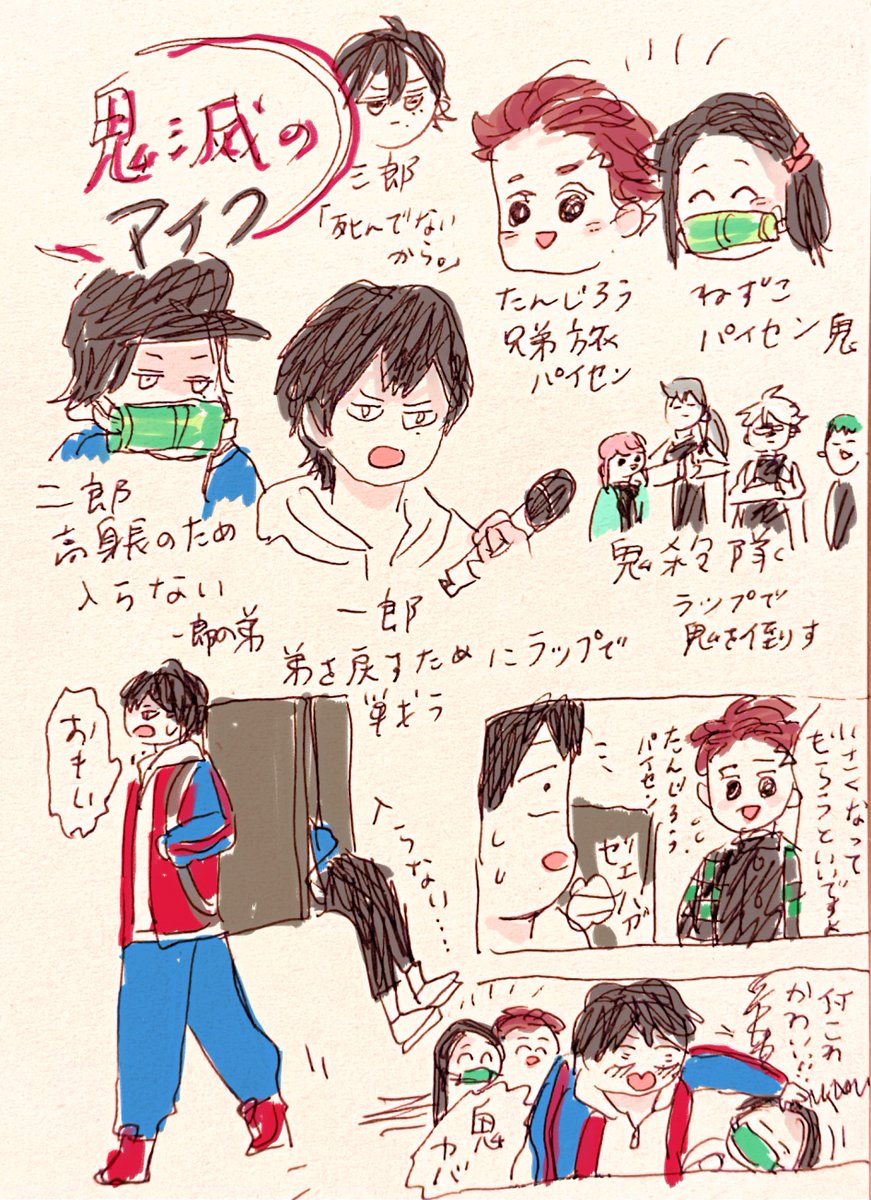 鬼滅の
マイク
三郎
「死んでない
から。」
たんじろう
兄弟旅
パイセン
ねずこ
パイセン鬼
二郎
高身長のため
入らない
一郎の弟
一郎
弟を戻すためにラップで
戦う
鬼殺隊
ラップで
鬼を倒す
おもい
入らない……
小さくなって
もらうといいですよ
たんじろう
パイセン
ゼェハァ
何これ
かわいい…
鬼
カバ